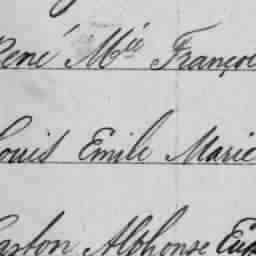 René Mie Françoi
Louis Emile Marie
Gaston Alphonse Eug